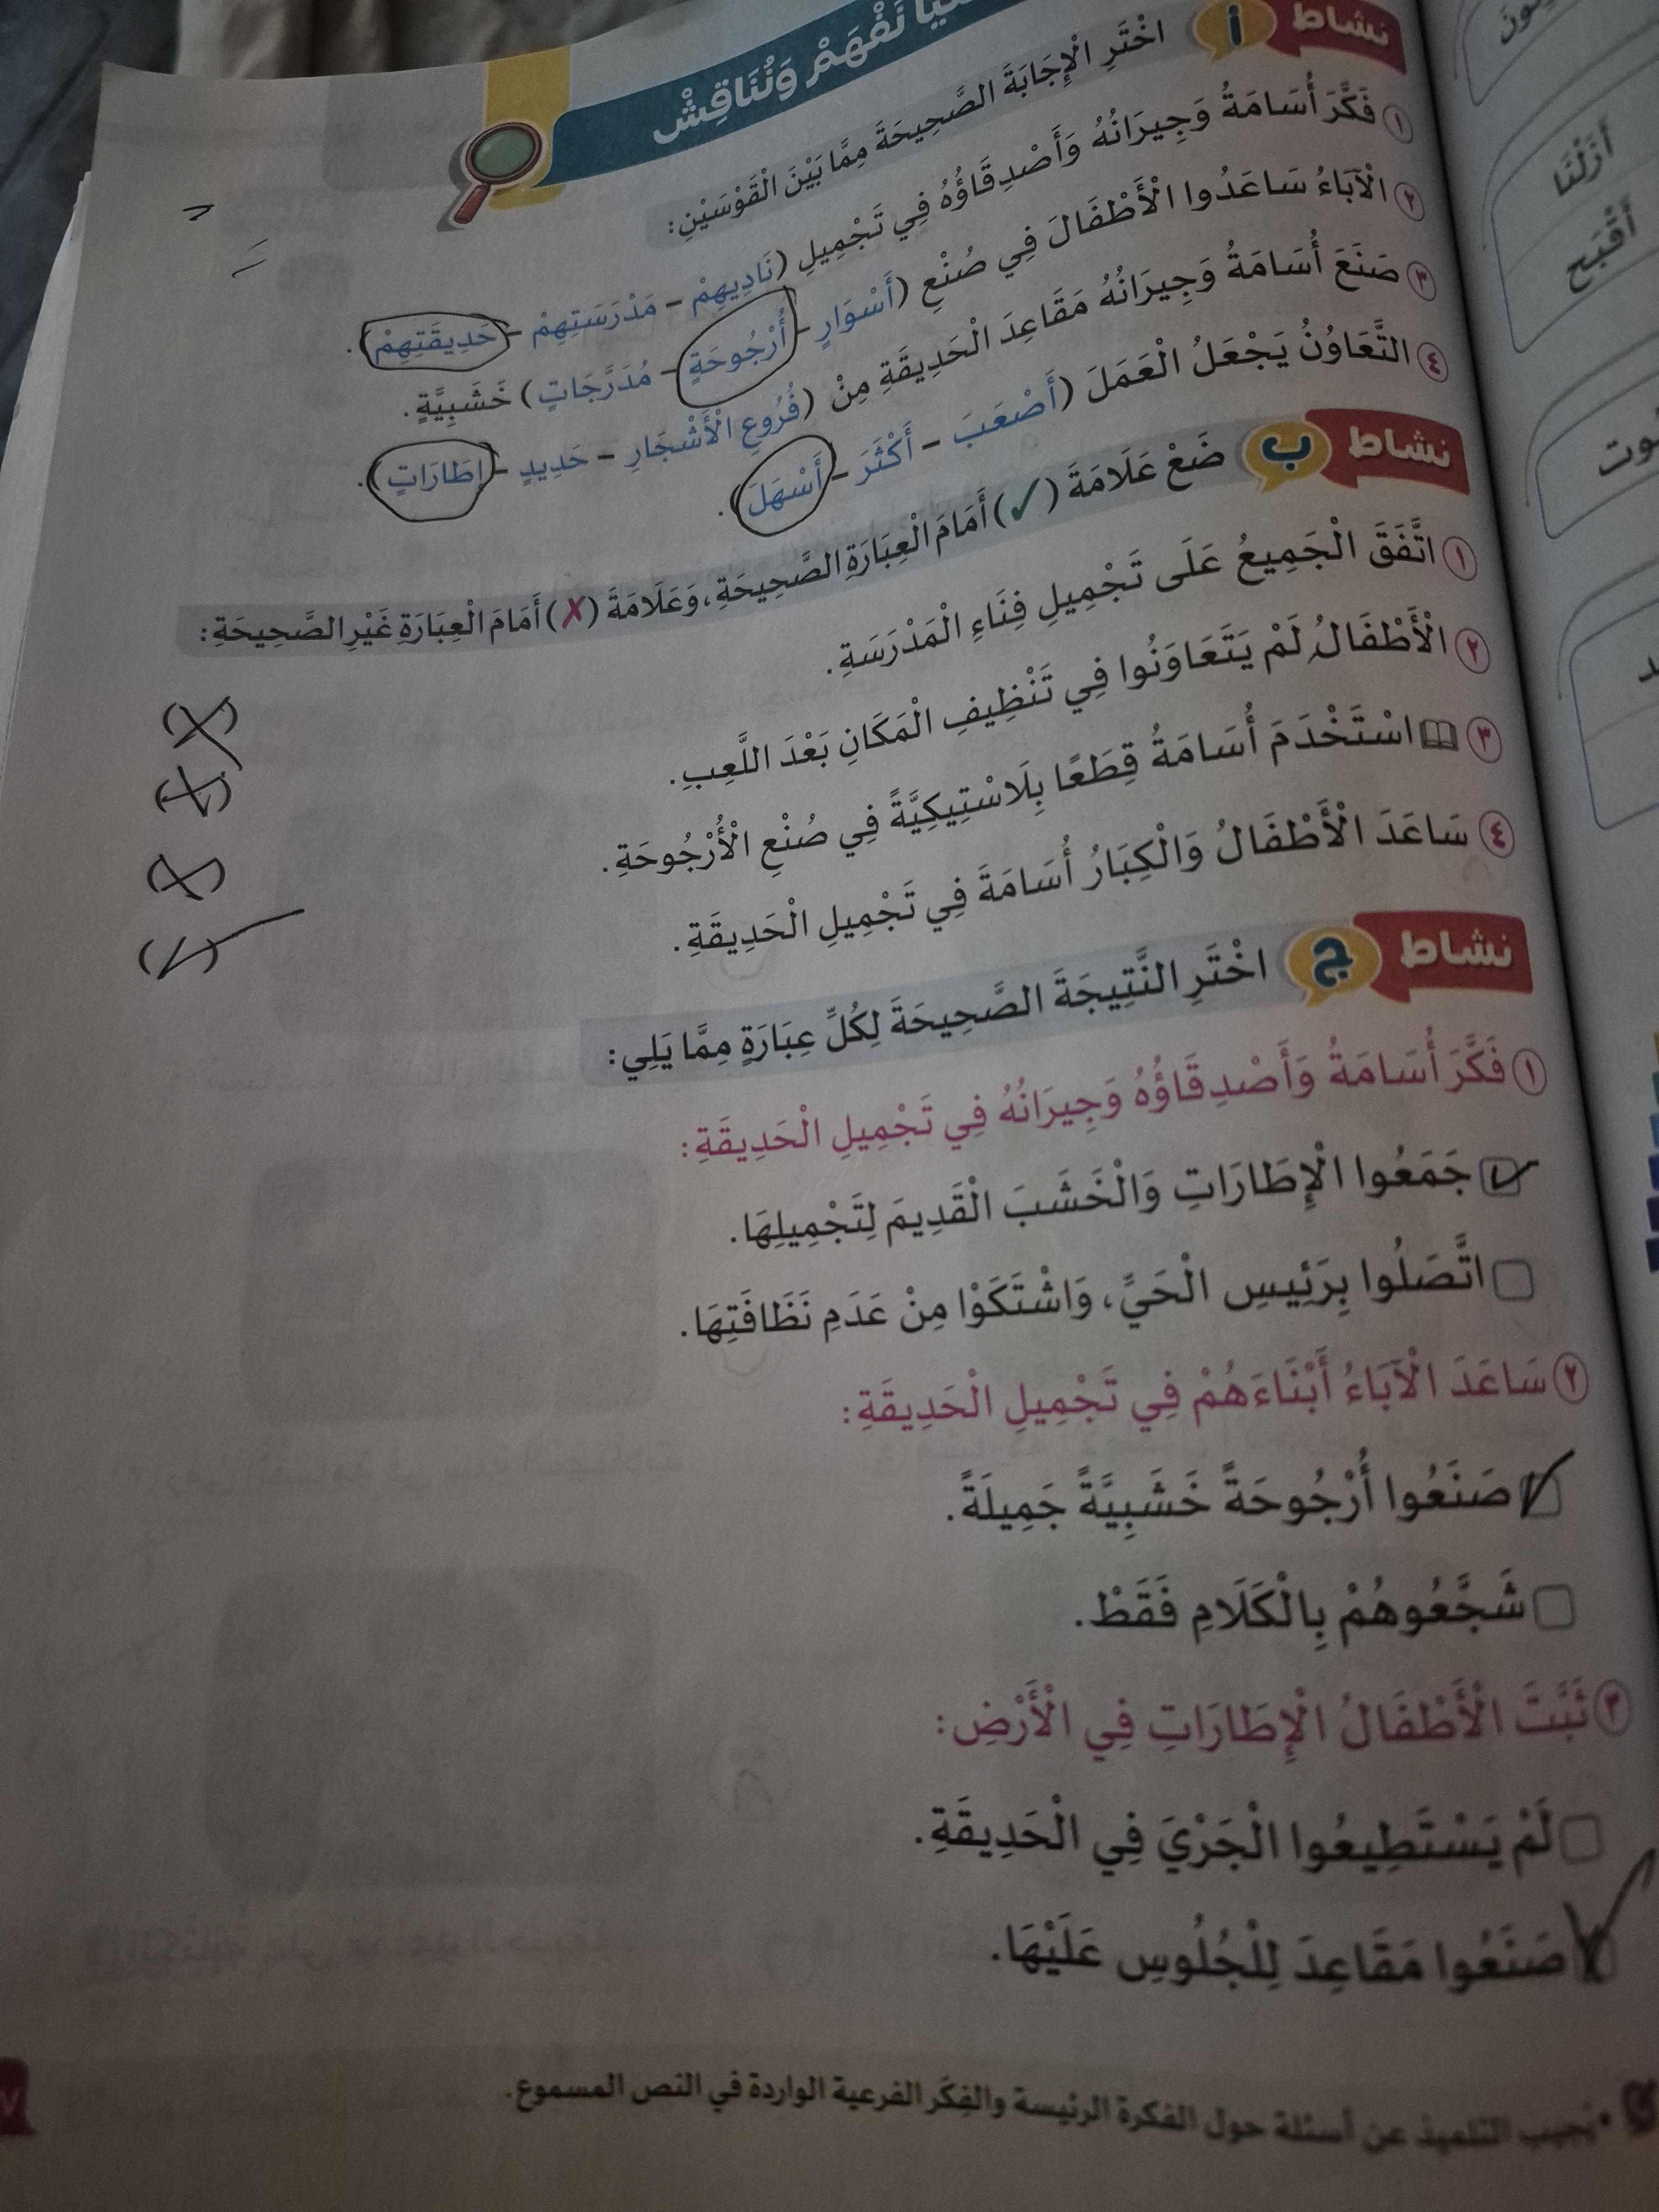 نَفْهَمْ وَنُنَاقِشْ
نشاط أ اخْتَرِ الْإِجَابَةَ الصَّحِيحَةَ مِمَّا بَيْنَ الْقَوْسَيْنِ:
١ فَكَّرَ أُسَامَةُ وَجِيرَانُهُ وَأَصْدِقَاؤُهُ فِي تَجْمِيلِ (نَادِيهِمْ - مَدْرَسَتِهِمْ - حَدِيقَتِهِمْ).
٢ الْآبَاءُ سَاعَدُوا الْأَطْفَالَ فِي صُنْعِ (أَسْوَارٍ - أُرْجُوحَةٍ - مُدَرَّجَاتٍ) خَشَبِيَّةٍ.
٣ صَنَعَ أُسَامَةُ وَجِيرَانُهُ مَقَاعِدَ الْحَدِيقَةِ مِنْ (فُرُوعِ الْأَشْجَارِ - حَدِيدٍ - إِطَارَاتٍ).
٤ التَّعَاوُنُ يَجْعَلُ الْعَمَلَ (أَصْعَبَ - أَكْثَرَ - أَسْهَلَ).
نشاط ب ضَعْ عَلَامَةَ (✓) أَمَامَ الْعِبَارَةِ الصَّحِيحَةِ، وَعَلَامَةَ (✗) أَمَامَ الْعِبَارَةِ غَيْرِ الصَّحِيحَةِ:
١ اتَّفَقَ الْجَمِيعُ عَلَى تَجْمِيلِ فِنَاءِ الْمَدْرَسَةِ. (✗)
٢ الْأَطْفَالُ لَمْ يَتَعَاوَنُوا فِي تَنْظِيفِ الْمَكَانِ بَعْدَ اللَّعِبِ. (✗)
٣ اسْتَخْدَمَ أُسَامَةُ قِطَعًا بِلَاسْتِيكِيَّةً فِي صُنْعِ الْأُرْجُوحَةِ. (✗)
٤ سَاعَدَ الْأَطْفَالُ وَالْكِبَارُ أُسَامَةَ فِي تَجْمِيلِ الْحَدِيقَةِ. (✓)
نشاط ج اخْتَرِ النَّتِيجَةَ الصَّحِيحَةَ لِكُلِّ عِبَارَةٍ مِمَّا يَلِي:
١ فَكَّرَ أُسَامَةُ وَأَصْدِقَاؤُهُ وَجِيرَانُهُ فِي تَجْمِيلِ الْحَدِيقَةِ:
جَمَعُوا الْإِطَارَاتِ وَالْخَشَبَ الْقَدِيمَ لِتَجْمِيلِهَا.
اتَّصَلُوا بِرَئِيسِ الْحَيِّ، وَاشْتَكَوْا مِنْ عَدَمِ نَظَافَتِهَا.
٢ سَاعَدَ الْآبَاءُ أَبْنَاءَهُمْ فِي تَجْمِيلِ الْحَدِيقَةِ:
صَنَعُوا أُرْجُوحَةً خَشَبِيَّةً جَمِيلَةً.
شَجَّعُوهُمْ بِالْكَلَامِ فَقَطْ.
٣ ثَبَّتَ الْأَطْفَالُ الْإِطَارَاتِ فِي الْأَرْضِ:
لَمْ يَسْتَطِيعُوا الْجَرْيَ فِي الْحَدِيقَةِ.
صَنَعُوا مَقَاعِدَ لِلْجُلُوسِ عَلَيْهَا.
• يُجيب التلميذ عن أسئلة حول الفكرة الرئيسة والفِكَر الفرعية الواردة في النص المسموع.
أَزَلْنَا
أَقْبَح